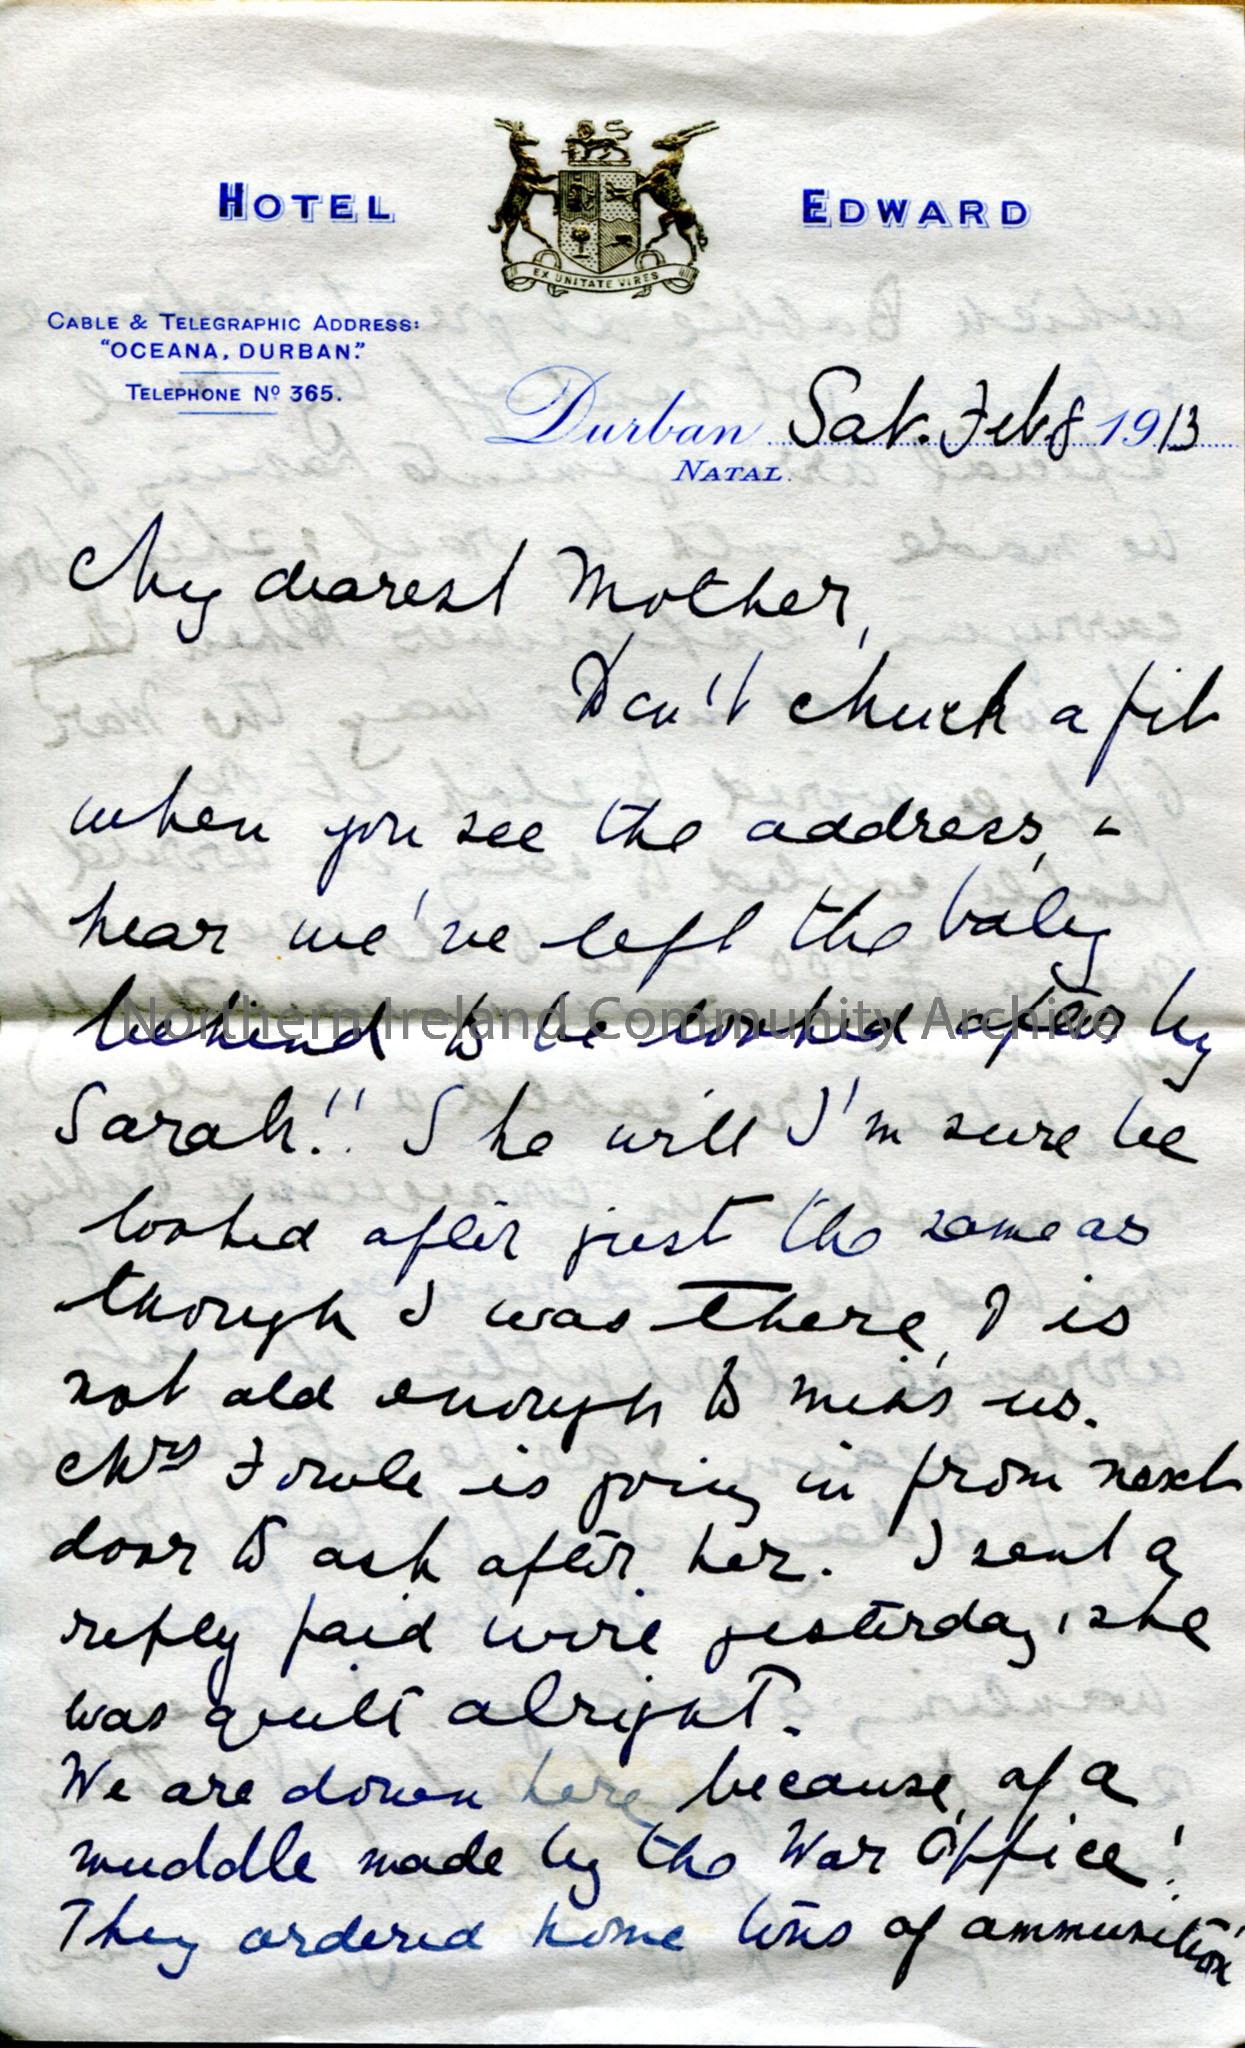 HOTEL EDWARD
EX UNITATE VIRES
CABLE & TELEGRAPHIC ADDRESS:
"OCEANA, DURBAN."
TELEPHONE Nº 365.
Durban Sat. Feb 8 1913
NATAL.
My dearest Mother,
Don't chuck a fit
when you see the address, &
hear we've left the baby
behind to be looked after by
Sarah!! She will I'm sure be
looked after just the same as
though I was there, & is
not old enough to miss us.
Mrs Fowle is going in from next
door to ask after her. I sent a
reply paid wire yesterday, she
was quite alright.
We are down here because of a
muddle made by the War Office!
They ordered home tons of ammunition
Northern Ireland Community Archive